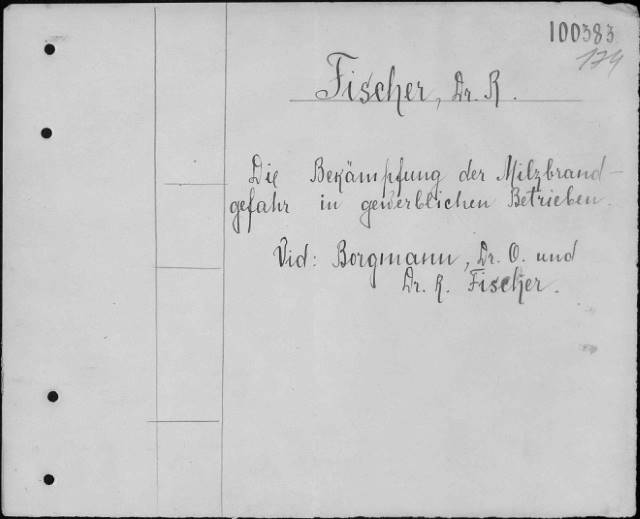 100383
174
Fischer, Dr. R.
Die Bekämpfung der Milzbrand-
gefahr in gewerblichen Betrieben.
Vid: Borgmann, Dr. O. und
Dr. R. Fischer.